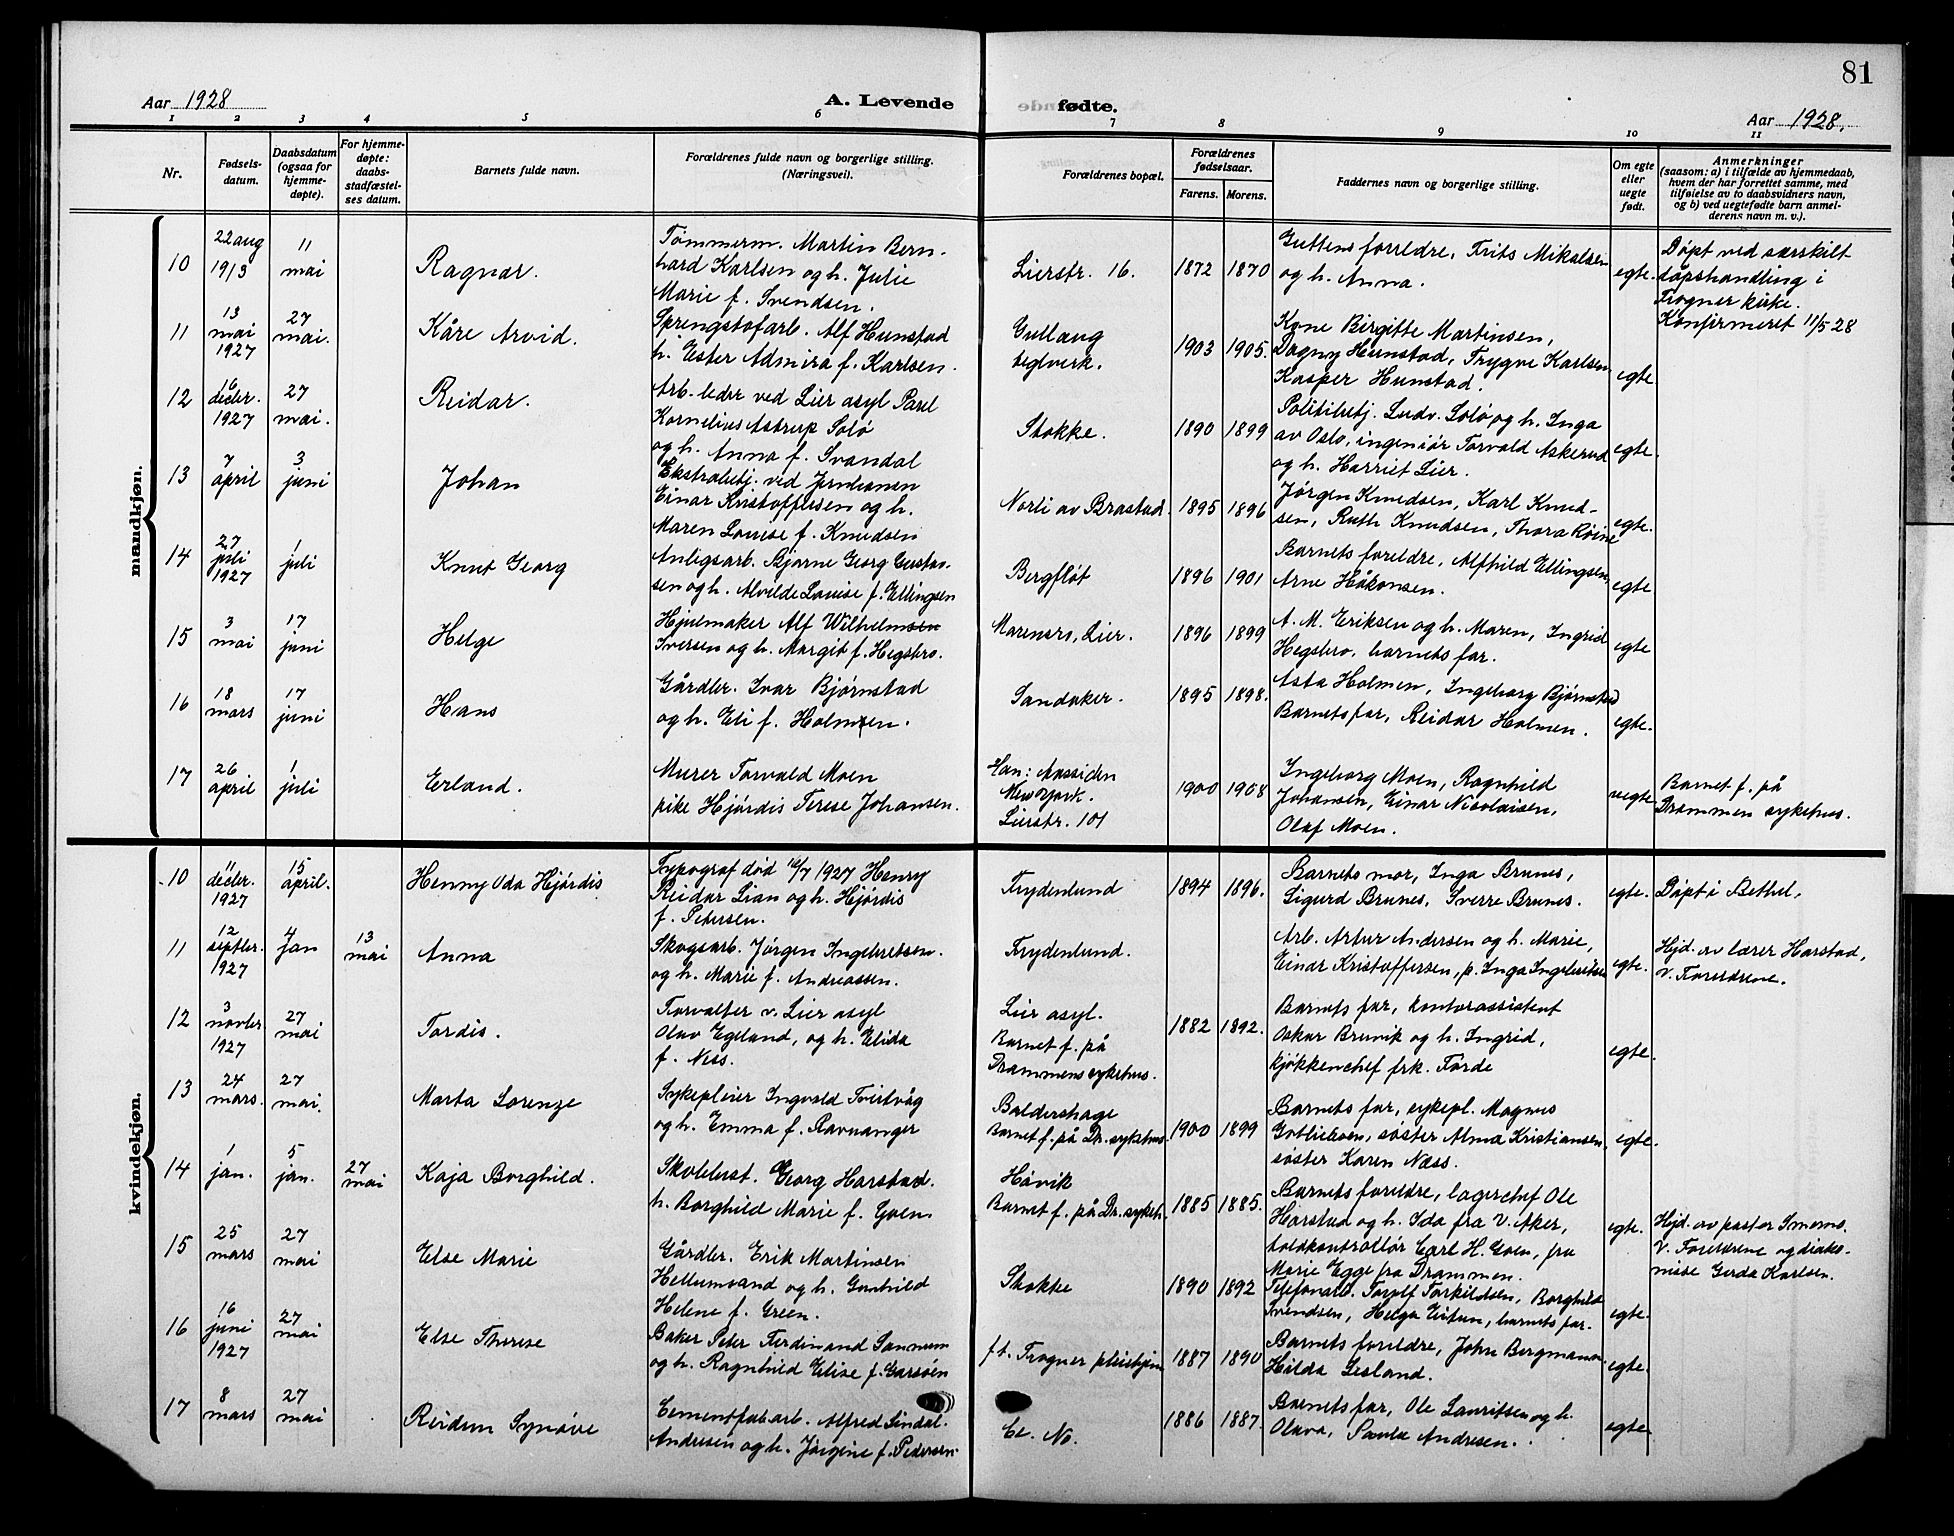 81
Aar 1928
A. Levende
fødte.
Aar 1928.
1 2 3 4 5 6 7 8 9 10 11
Nr.
Fødsels-
datum.
Daabsdatum
(ogsaa for
hjemme-
døpte).
For hjemme-
døpte:
daabs-
stadfæstel-
ses datum.
Barnets fulde navn.
Forældrenes fulde navn og borgerlige stilling.
(Næringsvei).
Forældrenes bopæl.
Forældrenes
fødselsaar.
Farens. Morens.
Faddernes navn og borgerlige stilling.
Om egte
eller
uegte
født.
Anmerkninger
(saasom: a) i tilfælde av hjemmedaab,
hvem der har forrettet samme, med
tilføielse av to daabsvidners navn,
og b) ved uegtefødte barn anmel-
derens navn m. v.).
mandkjøn.
10
22 aug
1913
11
mai
Ragnar.
Tømmerm. Martin Bern-
hard Karlsen og h. Julie
Marie f. Svendsen.
Lierstr. 16.
1872 1870
Guttens foreldre, Frits Mikalsen
og h. Anna.
egte.
Døpt ved særskilt
dåpshandling i
Frogner kirke.
Konfirmeret 11/5 28
11
13
mai
1927
27
mai.
Kåre Arvid.
Sprengstofarb. Alf Hunstad
h. Ester Admira f. Karlsen.
Gullaug
teglverk.
1903 1905.
Kone Birgitte Martinsen,
Dagny Hunstad, Trygve Karlsen
Kasper Hunstad.
egte
12
16
decbr.
1927
27
mai.
Reidar.
Arb. leder ved Lier asyl Parel
Kornelius Astrup Solø
og h. Anna f. Svandal
Stokke.
1890 1899
Politibetj. Ludv. Solø og h. Inga
av Oslo, ingeniør Torvald Askerud
og h. Harriet Lier.
egte.
13
7
april
3
juni
Johan
Ekstrabetj. ved Jernbanen
Einar Kristoffersen og h.
Maren Louise f. Knudsen
Norli av Brastad.
1895 1896
Jørgen Knudsen, Karl Knud-
sen, Ruth Knudsen, Thora Röine
egte.
14
27
juli
1927
1
juli
Knut Georg
Anligsarb. Bjarne Georg Gustav-
sen og h. Alvilde Louise f. Ellingsen
Bergfløt
1896 1901
Barnets foreldre, Alfhild Ellingsen,
Arne Håkonsen.
egte
15
3
mai
17
juni
Helge
Hjulmaker Alf Wilhelmsen
Iversen og h. Margit f. Hegsbro.
Marensro, Lier.
1896 1899
A. M. Eriksen og h. Maren, Ingrid
Hegsbro, barnets far.
egte
16
18
mars
17
juni
Hans
Gårdbr. Ivar Bjørnstad
og h. Eli f. Holmen.
Sandaker.
1895 1898.
Asta Holmen, Ingeborg Bjørnstad
Barnets far, Reidar Holmen.
egte.
17
26
april
1
juli
Erland.
Murer Torvald Moen
pike Hjórdis Terese Johansen.
Han: Aassiden
New York.
Lierstr. 101
1900 1908
Ingeborg Moen, Ragnhild
Johansen, Einar Nicolaisen,
Olaf Moen.
uegte
Barnet f. på
Drammen sykehus.
kvindekjøn.
10
11
decbr.
1927
15
april.
Henny Oda Hjórdis
Typograf død 14/7 1927 Henry
Reidar Lian og h. Hjórdis
f. Petersen.
Frydenlund
1894 1896.
Barnets mor, Inga Brunes,
Sigurd Brunes, Sverre Brunes.
egte.
Døpt i Bethel.
11
12
septbr.
1927
4
jan
13
mai
Anna
Skogsarb. Jørgen Ingebretsen.
og h. Marie f. Andreassen.
Frydenlund.
Arb. Artur Andersen og h. Marie,
Einar Kristoffersen, p. Inga Ingebretsen
egte.
Hjd. av lærer Harstad,
v. Foreldrene.
12
3
novbr
1927
27
mai
Tordis.
Forvalter v. Lier asyl
Olav Egeland, og h. Elida
f. Ness.
Lier asyl.
Barnet f. på
Drammens sykehus.
1882 1892.
Barnets far, kontorassistent
Oskar Bruvik og h. Ingrid,
kjøkkenchef frk. Førde
egte.
13
24
mars.
27
mai.
Marta Lorenze
Sykepleier Ingvald Tveitvåg
og h. Emma f. Ravnanger
Baldershage
Barnet f. på Dr. sykehus
1900 1899
Barnets far, sykepl. Magnus
Gotliebsen, søster Alma Kristiansen,
søster Karen Næss.
egte.
14
1
jan.
5
jan.
27
mai
Kaja Borghild.
Skolebest. Georg Harstad.
h. Borghild Marie f. Goen
Høvik
Barnet f. på Dr. sykeh.
1885 1885.
Barnets foreldre, lagerchef Ole
Harstad og h. Ida fra V. Aker,
toldkontrollør Carl H. Goen, fru
Marie Egge fra Drammen.
egte.
Hjd. av pastor Smemo.
V. Foreldrene og diako-
nisse Gerda Karlsen.
15
25
mars
27
mai
Else Marie
Gårdbr. Erik Martinsen
Hellumsand og h. Gunhild
Helene f. Green.
Stokke
1890 1892
Telefonarb. Torulf Torkildsen, Borghild
Svendsen, Helga Eriksen, barnets far.
egte.
16
16
juni
1927
27
mai
Else Therese
Baker Peter Ferdinand Sannum
og h. Ragnhild Elise f. Garsøen
f.t. Frogner pleiehjem
1887 1890
Barnets foreldre, John Bergmann
Hilda Lesland.
egte.
17
8
mars
27
mai
Reidun Synøve
Cementfabarb. Alfred Sindal.
Andresen og h. Jørgine f. Pedersen.
Ce. No.
1886 1887.
Barnets far, Ole Lauritsen og h.
Olava, Paula Andresen.
egte